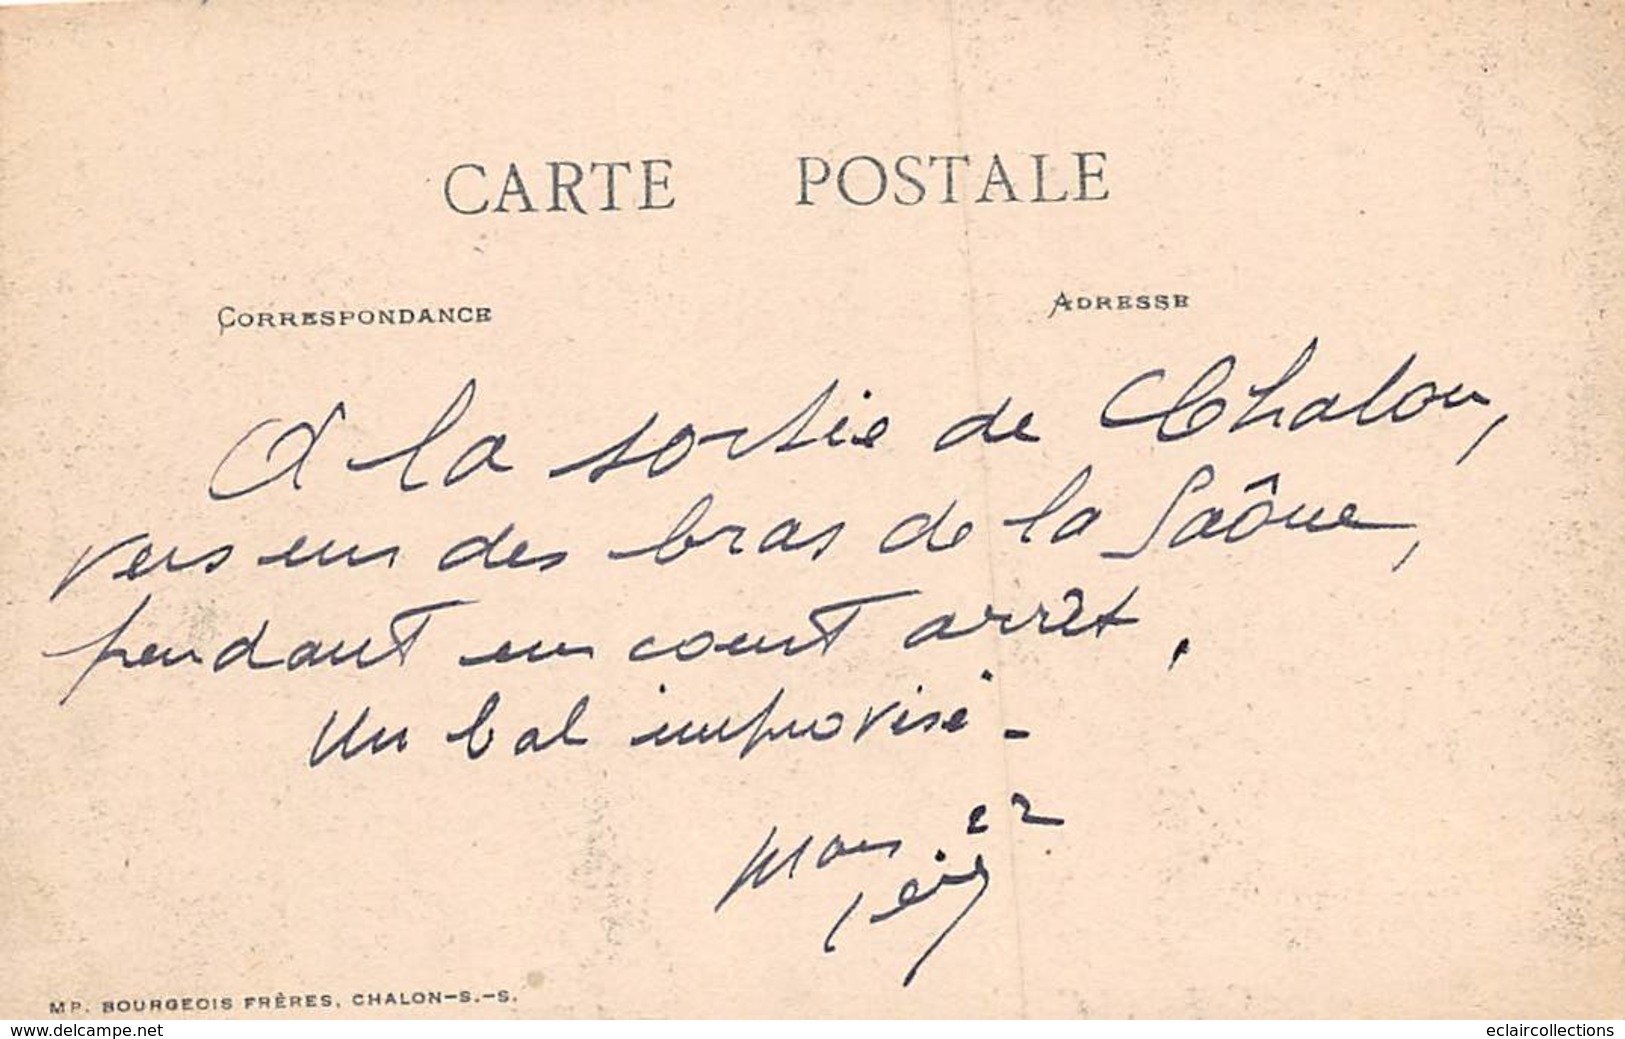 CARTE POSTALE
CORRESPONDANCE
ADRESSE
A la sortie de Chalon,
vers un des bras de la Saône,
pendant un court arrêt.
Un bal improvisé -
Mars 22
MP. BOURGEOIS FRÈRES, CHALON-S.-S.
www.delcampe.net
eclaircollections